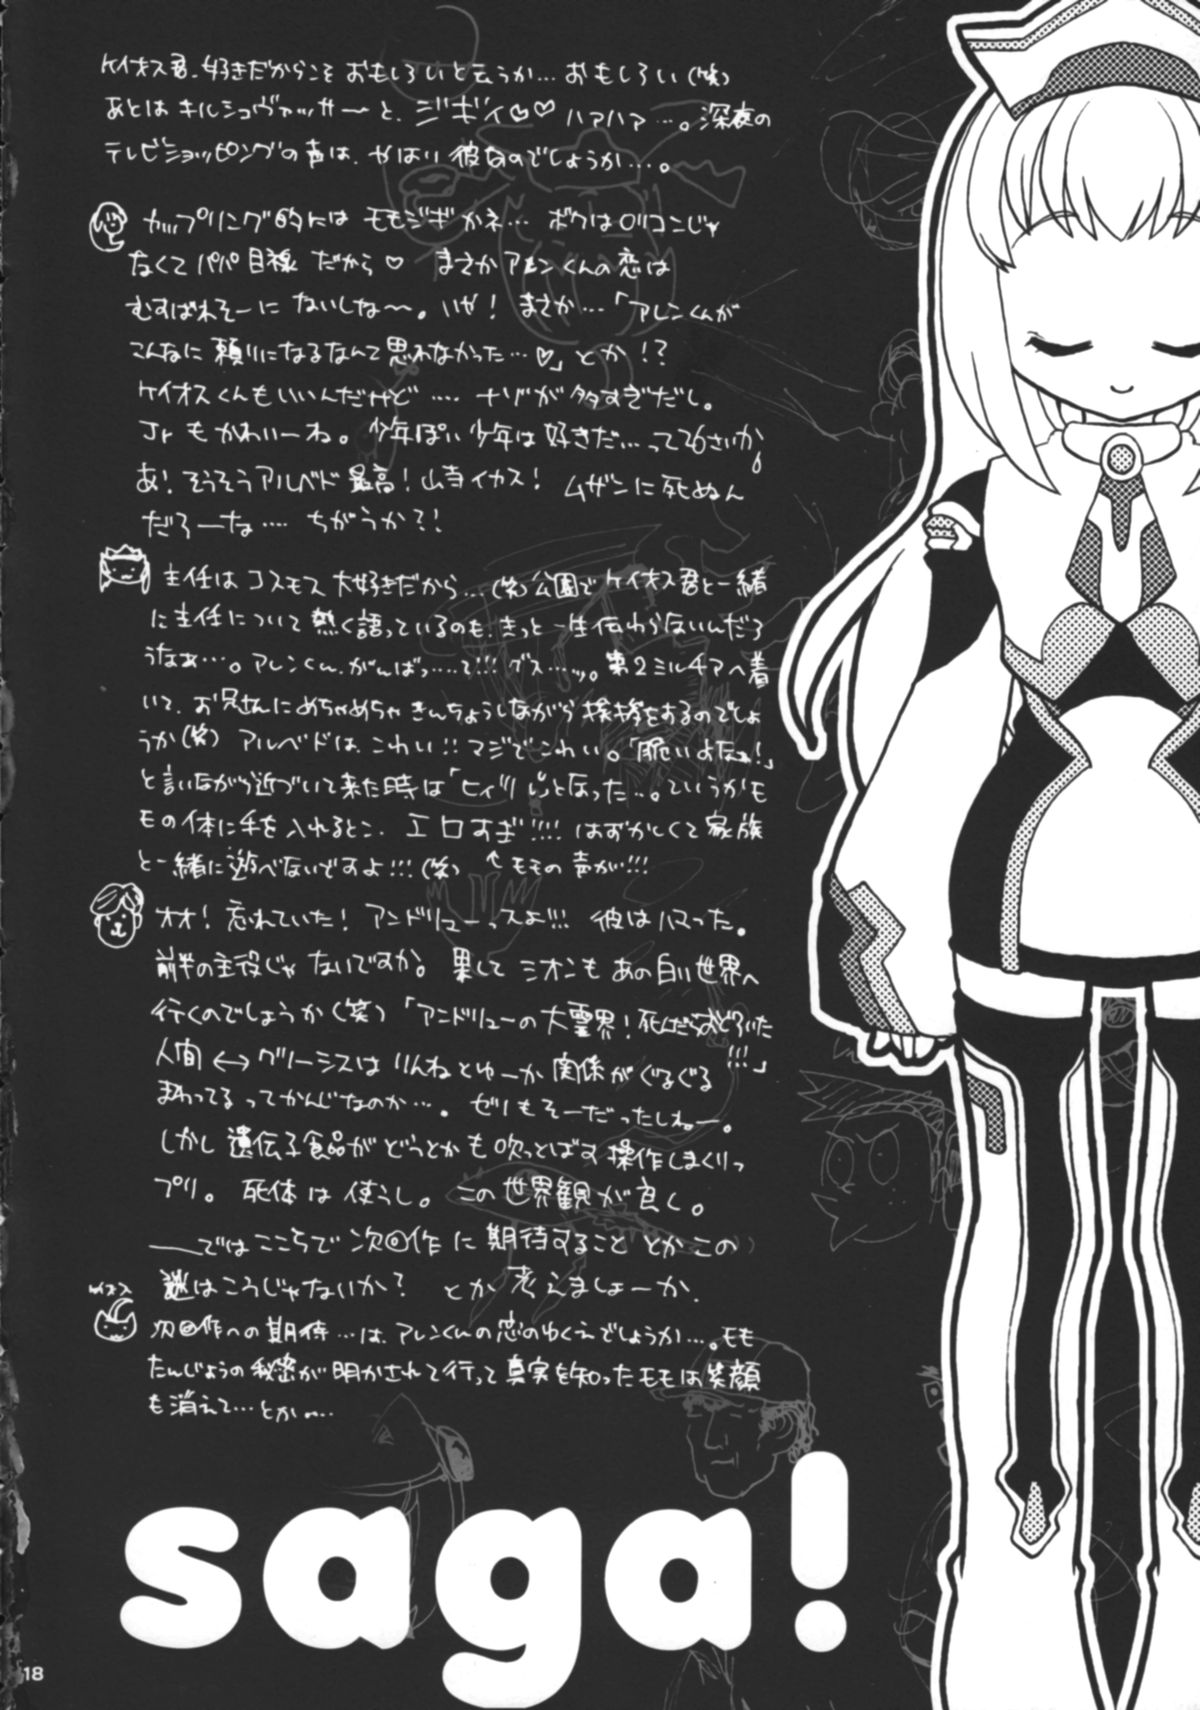 ケイオス君、好きだからこそ おもしろいと云うか… おもしろい(笑)
あとは キルシュヴァッサーと、ジギィ♡♡ ハァハァ…。深夜の
テレビショッピングの声は、やはり 彼女のでしょうか…。
カップリング的には モモジギかネ… ボクはロリコンじゃ
なくて パパ目線 だから♡ まさかアレンくんの恋は
むすばれそーに ないしな〜。いや! まさか…「アレンくんが
こんなに 頼りになるなんて 思わなかった…♡」とか!?
ケイオスくんもいいんだけど…. ナゾが多すぎだし。
Jrもかわいーね。少年ぽい少年は好きだ…って26さいか。
あ! そうそうアルベド 最高! 山寺イカス! ムザンに死ぬん
だろーな…. ちがうか?!
主任は コスモス 大好きだから…(笑)公園でケイオス君と一緒
に主任について 熱く語っているのも、きっと一生伝わらないんだろ
うなぁ…。アレンくん、がんばっ……て!!! グス……ッ。第2ミルチアへ着
いて、お兄さんにめちゃめちゃ きんちょうしながら 挨拶をするのでしょ
うか(笑) アルベドは、こわい!! マジでこわい。「脆いよなぁ!」
と言いながら近づいて来た時は「ヒィッ!」となった…。ていうかモ
モの体に手を入れるとこ、エロすぎ!!!! はずかしくて 家族
と一緒に遊べないですよ!!!(笑) ↑モモの声が!!!
オオ! 忘れていた! アンドリューっスよ!!! 彼は ハマった。
前半の主役じゃ ないですか。果して シオンも あの白い世界へ
行くのでしょうか(笑)「アンドリューの大霊界! 死んだらおどろいた!!!」
人間 ↔ グノーシスは りんねとゆーか 関係が ぐるぐる
まわってる ってかんじなのか…。ゼノもそーだったしねー。
しかし 遺伝子食品がどうとかも 吹っとばす 操作しまくりっ
プリ。 死体は 使うし。 この世界観が 良く。
――では ここらで 次回作に 期待すること とか この
謎はこうじゃないか? とか 考えましょーか。
次回作への 期待…は、アレンくんの 恋のゆくえでしょうか…。モモ
たんじょうの 秘密が 明かされて 行って 真実を知ったモモは笑顔
も 消えて…とか…
saga!
18